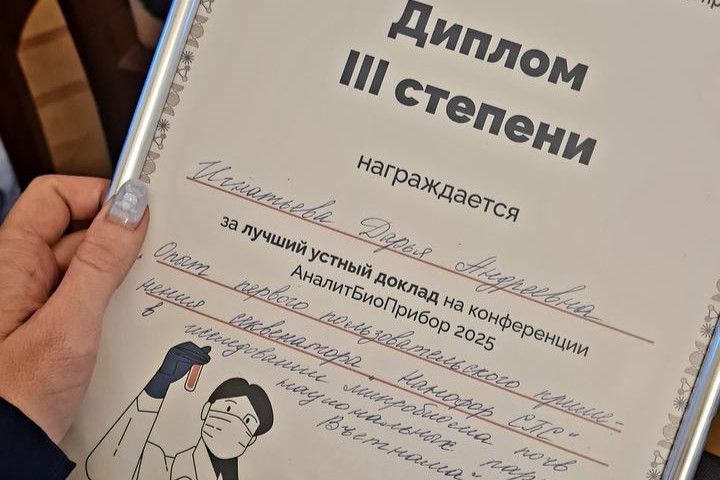 Диплом
III степени
награждается
Игнатьева Дарья Андреевна
за лучший устный доклад на конференции
АналитБиоПрибор 2025
"Опыт первого пользовательского приме-
нения секвенатора "Нанофор СПС"
в исследовании микробиома почв
национальных пар
Вьетнама"